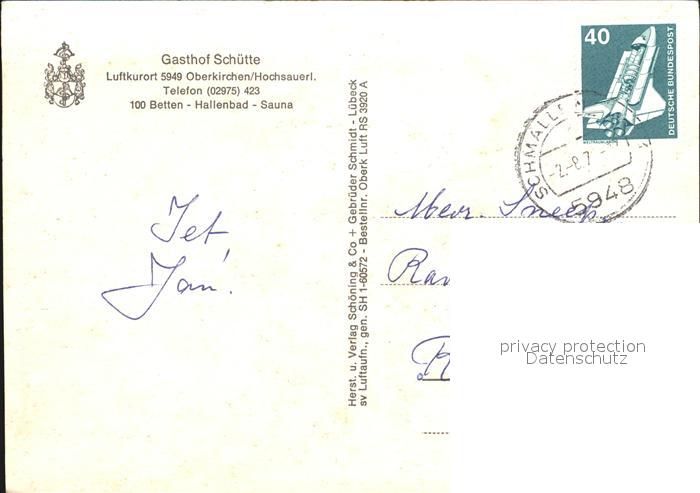 Gasthof Schütte
Luftkurort 5949 Oberkirchen/Hochsauerl.
Telefon (02975) 423
100 Betten - Hallenbad - Sauna
Jet
Jan!
Herst. u. Verlag Schöning & Co + Gebrüder Schmidt - Lübeck
sv Luftaufn., gen. SH 1-60572 - Bestellnr. Oberk Luft RS 3920 A
40
DEUTSCHE BUNDESPOST
5948
Mevr.
privacy protection
Datenschutz